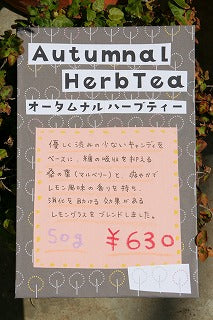 Autumnal
HerbTea
オータムナル ハーブティー
優しく渋みの少ないキャンディを
ベースに、糖の吸収を抑える
桑の葉(マルベリー)と、爽やかで
レモン風味の香りを持ち、
消化を助ける効果がある
レモングラスをブレンドしました。
50g ¥630